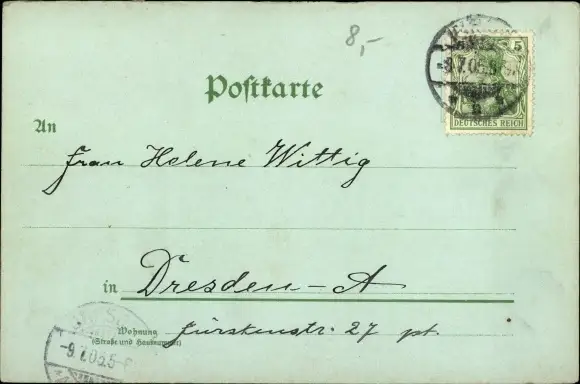 8,-
5
9.7.05.5
DEUTSCHES REICH
Postkarte
An
Frau Helene Wittig
in Dresden-A
Wohnung
(Straße und Hausnummer)
Fürstenstr. 27 pt.
-9.7.05.5-